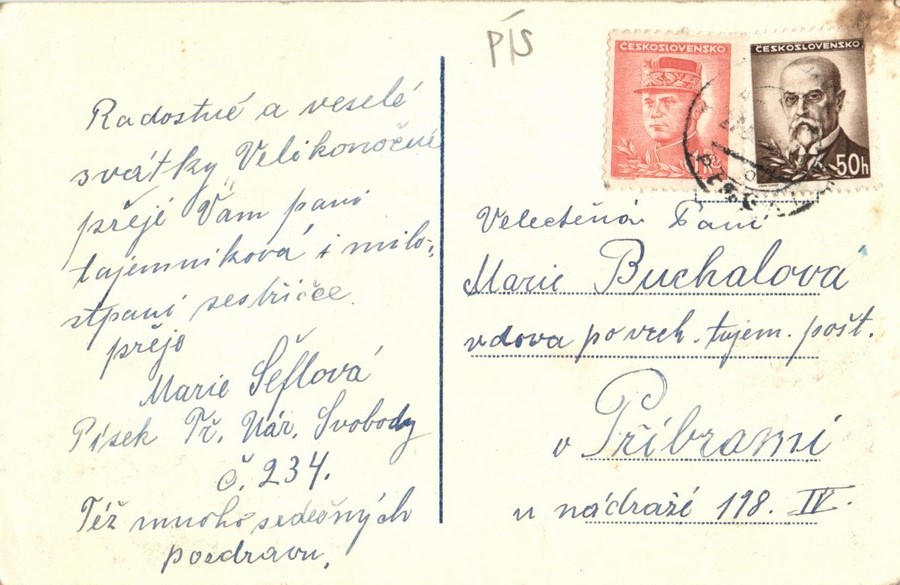 PÍS
ČESKOSLOVENSKO
1K
ČESKOSLOVENSKO
50h
Radostné a veselé
svátky Velikonočné
přejé Vám paní
tajemníková i milo-
stpaní sestřičce
přejo
Marie Šeflová
Písek Tř. Nár. Svobody
č. 234.
Též mnoho srdečných
pozdravu,
Velectěná Paní
Marie Buchalová
vdova po vrch. tajem. pošt.
v Příbrami
u nádraží 198. IV.